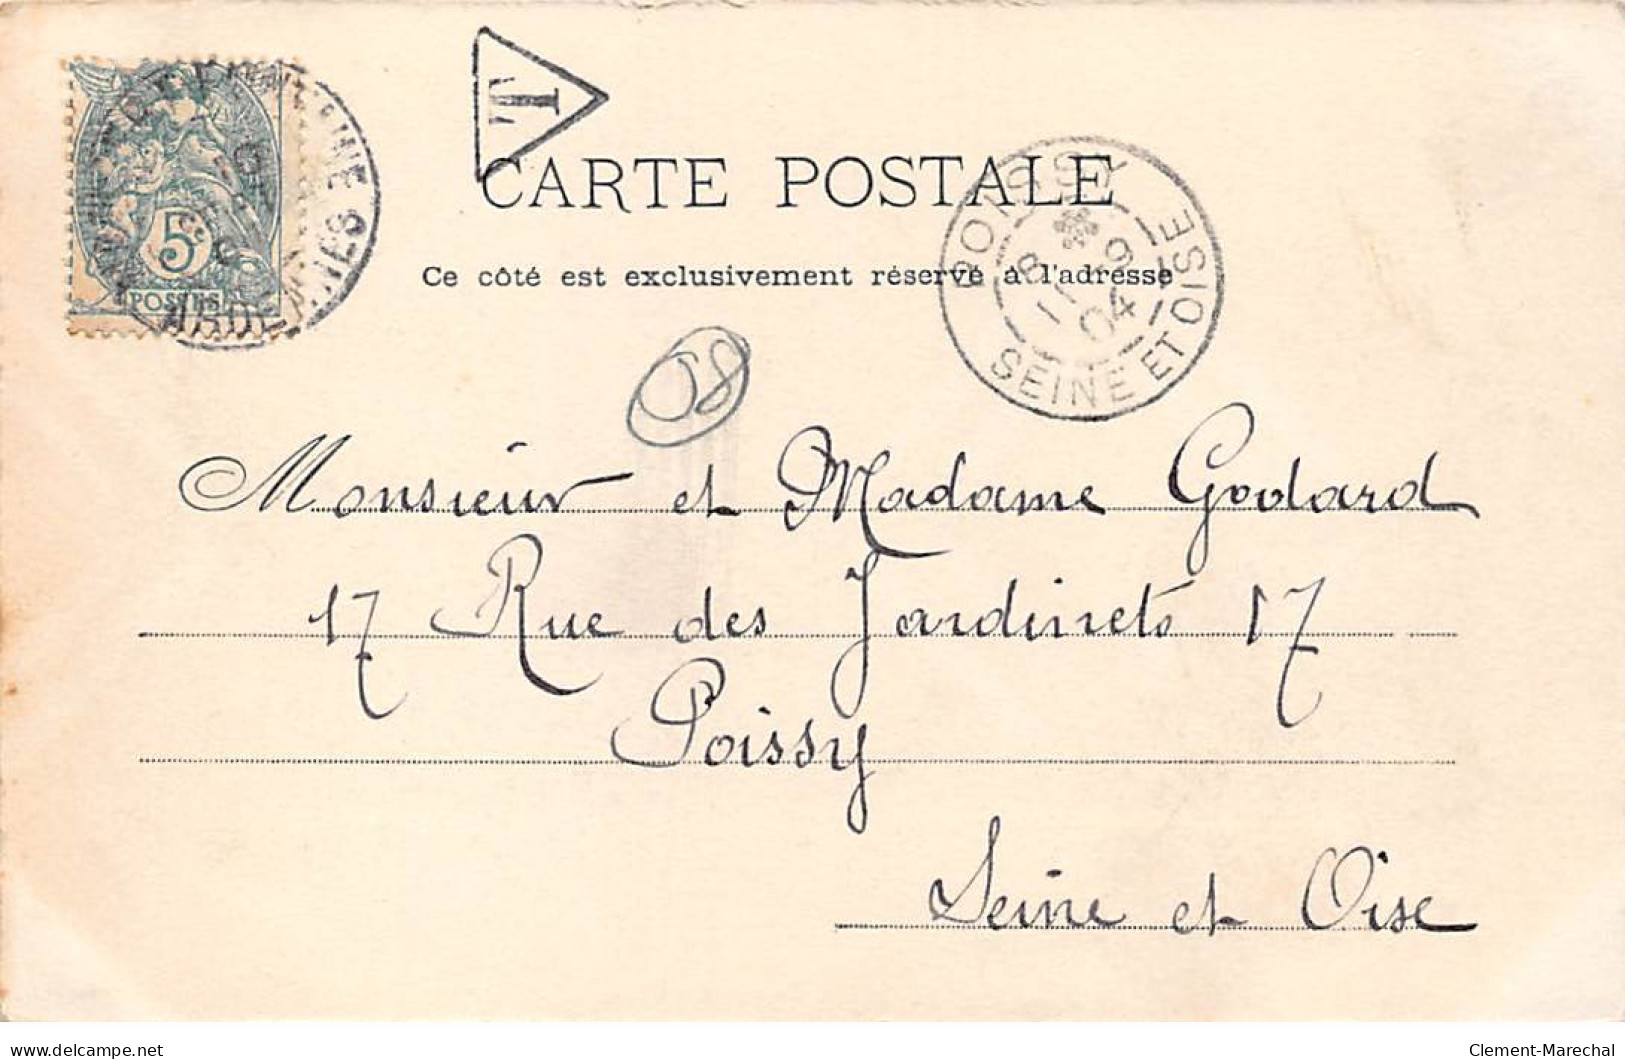 T
CARTE POSTALE
Ce côté est exclusivement réservé à l'adresse
5c
POSTES
ARDENNES
POISSY
8
11 9
04
SEINE ET OISE
08
Monsieur et Madame Godard
17 Rue des Jardinets 17
Poissy
Seine et Oise
delcampe.net
Clement-Marechal